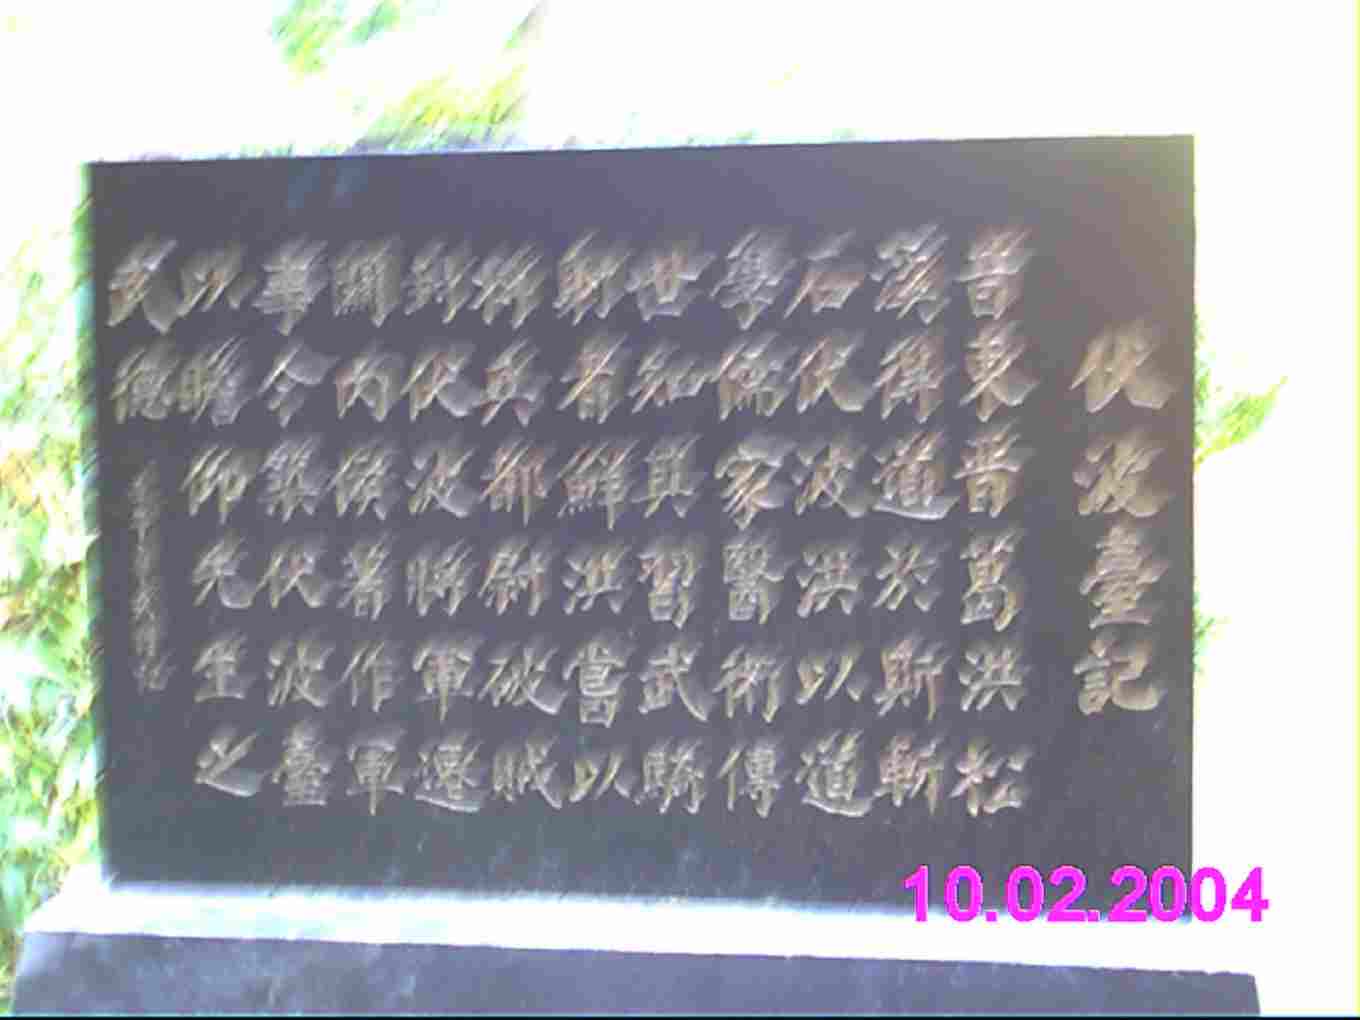 伏波臺記
昔東晋葛洪松
溪得道於斯斬
石伏波洪以道
學儒家醫術傳
世知其習武驕
勣者鮮洪嘗以
將兵都尉破賊
到伏波將軍遷
關內侯著作軍
華今築伏波臺
以瞻仰先生之
武德
10.02.2004